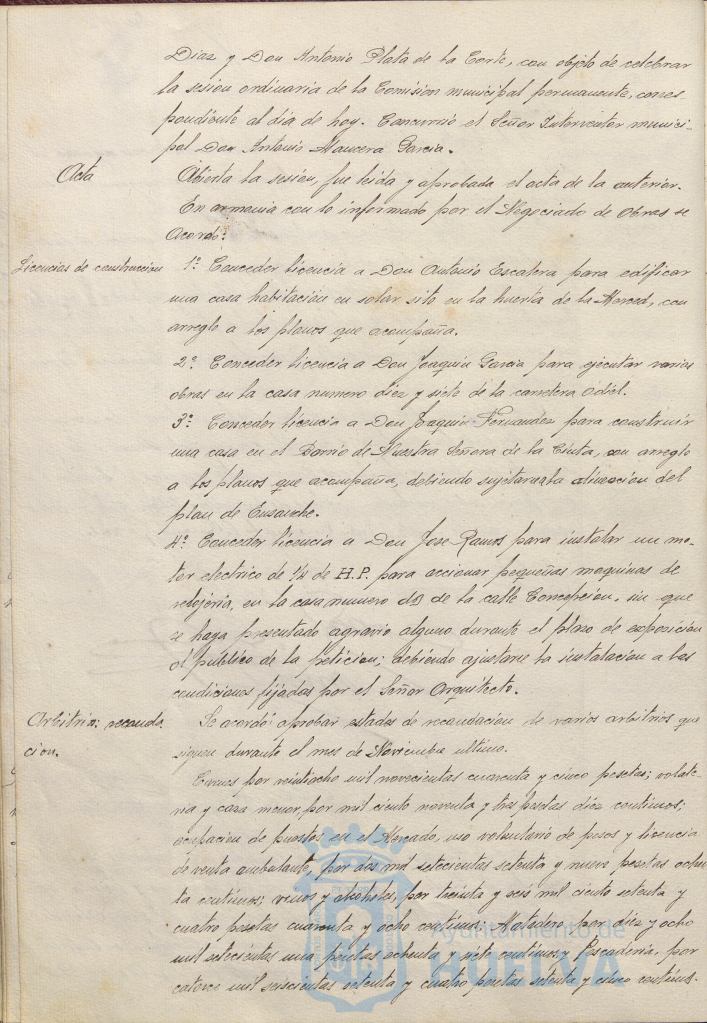 Diaz y Don Antonio Plata de la Corte, con objeto de celebrar
la sesion ordinaria de la Comision municipal permanente, corres
pondiente al dia de hoy. Concurrió el Señor Interventor munici-
pal Don Antonio Mancera Garcia.
Acta
Abierta la sesion, fue leida y aprobada el acta de la anterior.
En armonia con lo informado por el Negociado de Obras se
Acordó:
Licencias de construccion
1º Conceder licencia a Don Antonio Escalera para edificar
una casa habitacion en solar sito en la huerta de la Merced, con
arreglo a los planos que acompaña.
2º Conceder licencia a Don Joaquin Garcia para ejecutar varias
obras en la casa numero diez y siete de la carretera Odiel.
3º Conceder licencia a Don Joaquin Fernandez para construir
una casa en el Barrio de Nuestra Señora de la Cinta, con arreglo
a los planos que acompaña, debiendo sujetarse a la alineacion del
plan de Ensanche.
4º Conceder licencia a Don Jose Ramos para instalar un mo-
tor electrico de 1/4 de H.P. para accionar pequeñas maquinas de
relojeria, en la casa numero dos de la calle Concepcion, sin que
se haya presentado agravio alguno durante el plazo de exposicion
al publico de la peticion; debiendo ajustarse la instalacion a las
condiciones fijadas por el Señor Arquitecto.
Arbitrios: recauda
cion.
Se acordó aprobar estados de recaudacion de varios arbitrios que
siguen durante el mes de Noviembre ultimo.
Carnes por veintiocho mil novecientas cuarenta y cinco pesetas; volate-
ria y caza menor, por mil ciento noventa y tres pesetas diez centimos;
ocupacion de puestos en el Mercado, uso voluntario de pesos y licencia
de venta ambulante, por dos mil setecientas setenta y nueve pesetas ochen
ta centimos; vinos y alcoholes, por treinta y seis mil ciento setenta y
cuatro pesetas cuarenta y ocho centimos; Matadero por diez y ocho
mil setecientas una pesetas ochenta y siete centimos y Pescaderia, por
catorce mil seiscientas setenta y cuatro pesetas setenta y cinco centimos.
Ayuntamiento de
HUELVA